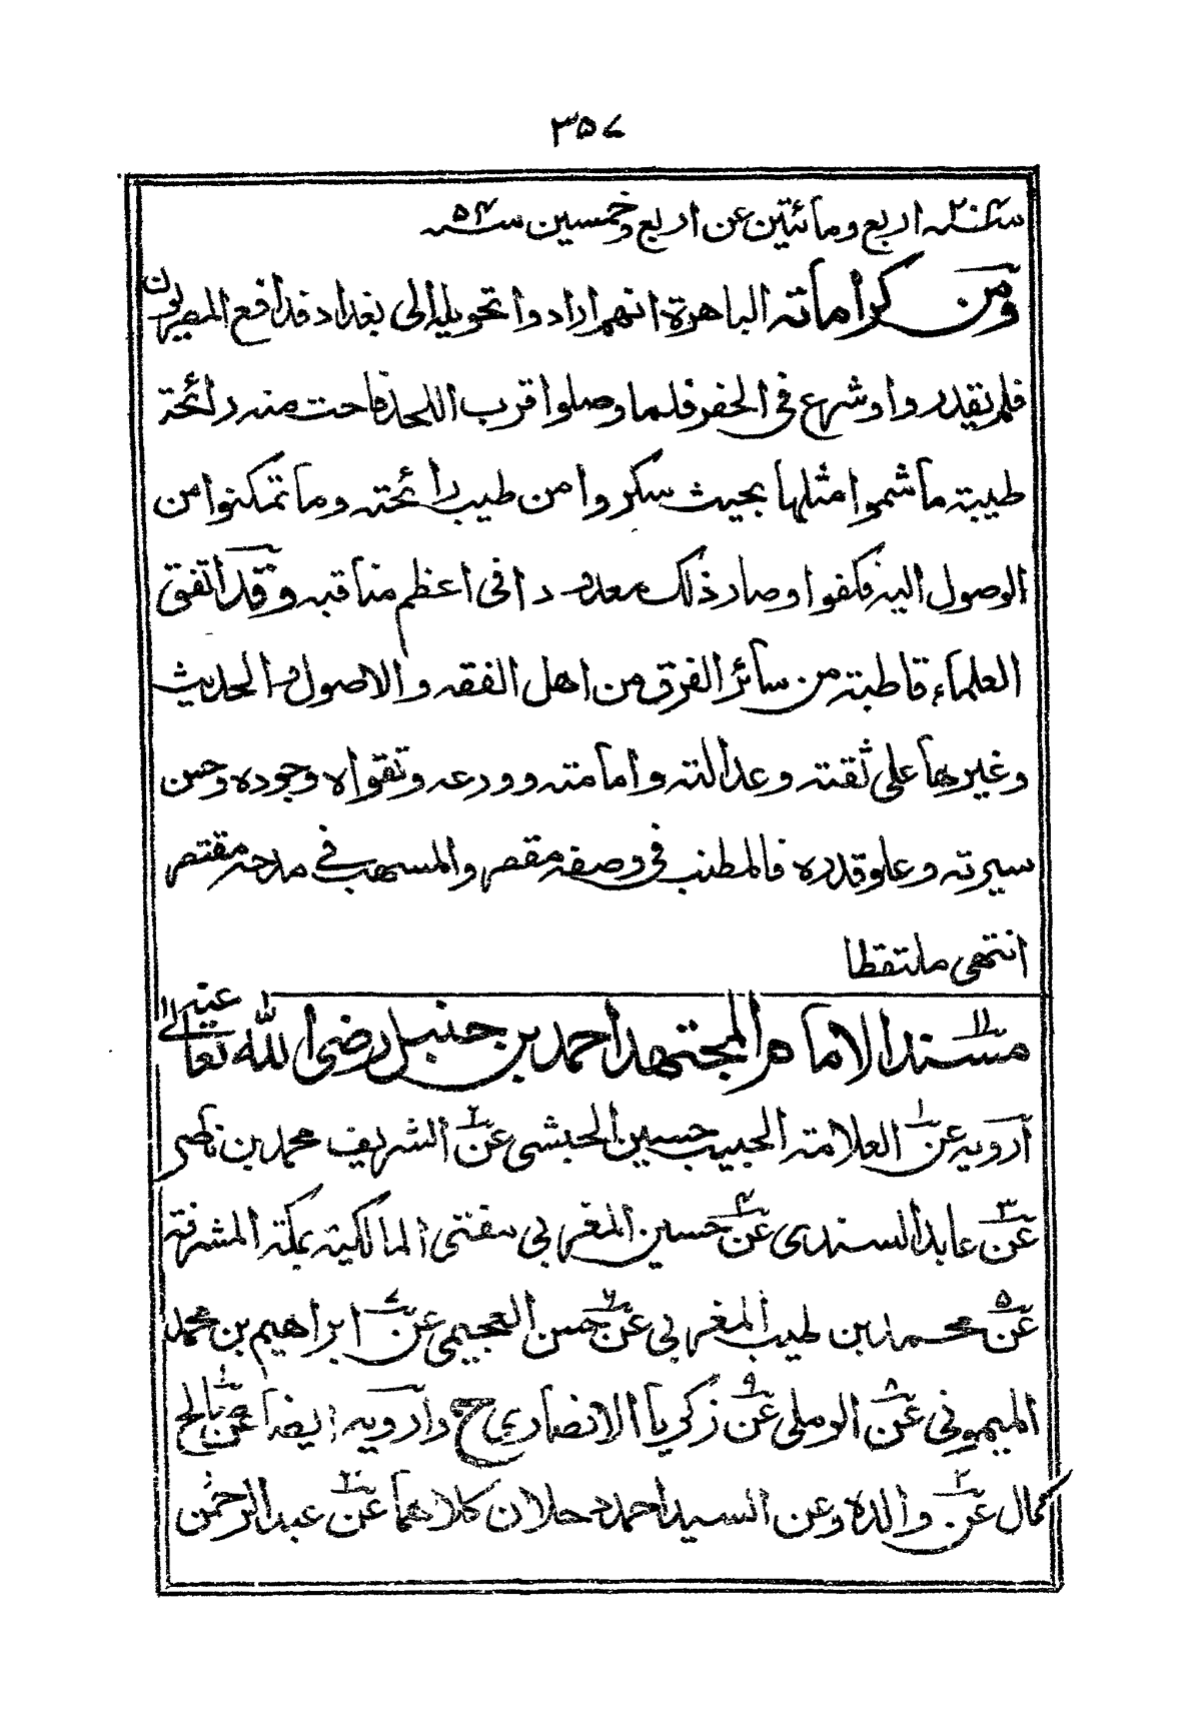 ٣٥٧
سنة ٢٠٤ اربع ومائتين عن اربع وخمسين سنة ٥٤
ومن كراماته الباهرة انهم ارادوا تحويله الى بغداد فدافع المصريون
فلم يقدروا وشرع في الحفر فلما وصلوا قرب اللحد فاحت منه رائحة
طيبة ما شموا مثلها بحيث سكروا من طيب رائحته وما تمكنوا من
الوصول اليه فكفوا وصار ذلك معدودا في اعظم مناقبه وقد اتفق
العلماء قاطبة من سائر الفرق من اهل الفقه والاصول والحديث
وغيرها على ثقته وعدالته وامامته وورعه وتقواه وجوده وحسن
سيرته وعلو قدره فالمطنب في وصفه مقصر والمسهب في مدحه مقتصر
انتهى ملتقطا
مسند الامام المجتهد احمد بن حنبل رضى الله تعالى عنه ١١
ارويه عن ١ العلامة الحبيب حسين الحبشى عن ٢ الشريف محمد بن ناصر
عن ٣ عابد السندى عن ٤ حسين المغربي مفتى المالكية بمكة المشرفة
عن ٥ محمد بن طيب المغربي عن ٦ حسن العجيمى عن ٧ ابراهيم بن محمد
الميموني عن ٨ الرملى عن ٩ زكريا الانصارى ح وارويه ايضا عن ١ صالح
كمال عن ٢ والده وعن السيد احمد دحلان كلاهما عن ٣ عبد الرحمن